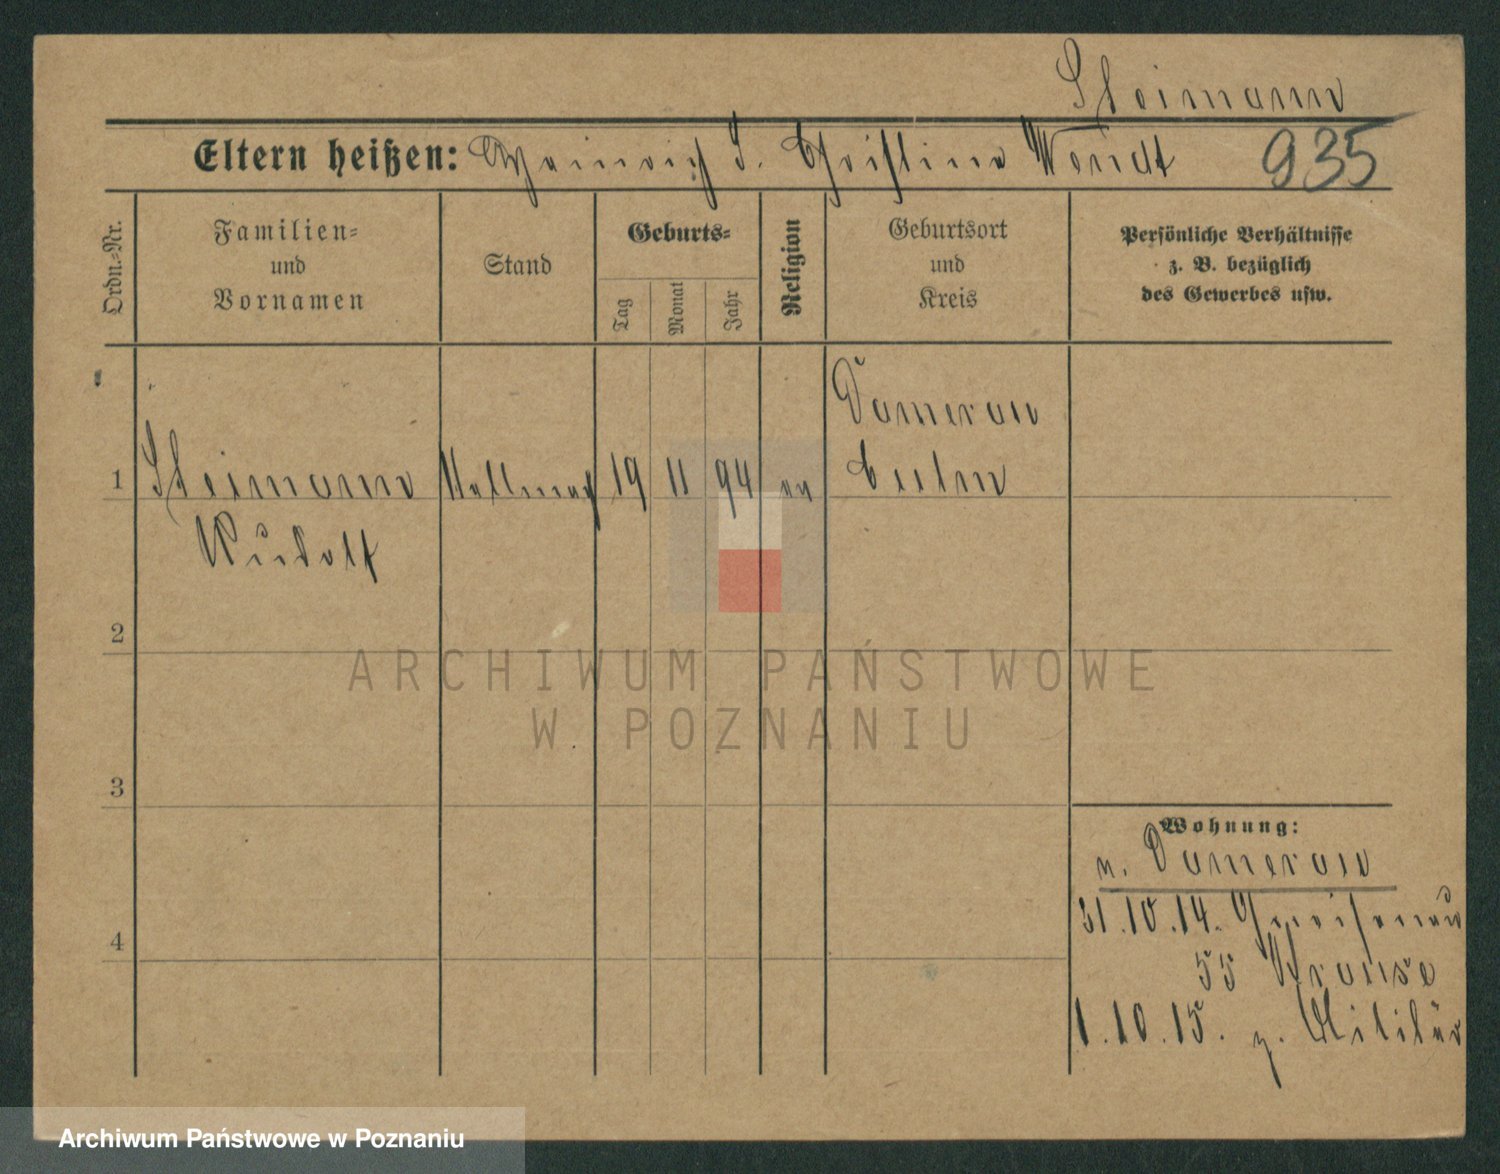 Steimann
Eltern heißen: Heinrich S. Christine Wendt 935
Ordn.-Nr.
Familien-
und
Vornamen
Stand
Geburts-
Tag
Monat
Jahr
Religion
Geburtsort
und
Kreis
Persönliche Verhältnisse
z. B. bezüglich
des Gewerbes usw.
Damerau
1 Steimann 19 11 94 ev Culm
Rudolf
2
ARCHIWUM PAŃSTWOWE
W POZNANIU
3
Wohnung:
n. Damerau
31.10.14. Gneisenau
4
55 Krause
1.10.15. z. Militär
Archiwum Państwowe w Poznaniu